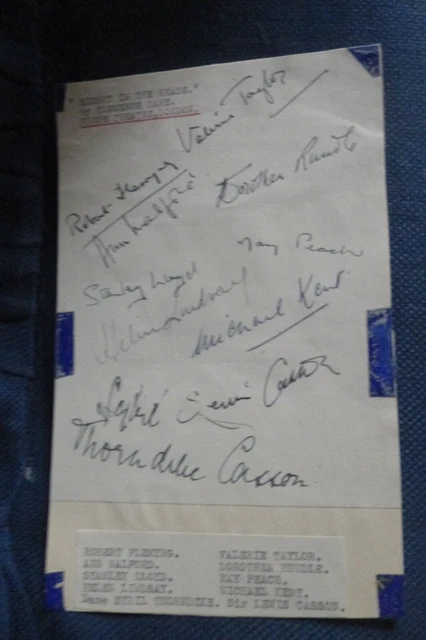 "EIGHTY IN THE SHADE."
BY CLEMENCE DANE.
GLOBE THEATRE, LONDON.
Valerie Taylor
Robert Flemyng
Dorothea Rundle
Ann Halford
May Peach
Stanley Lloyd
Helen Lindsay
Michael Kent
Sybil Lewis Casson
Thorndike Casson
ROBERT FLEMING. VALERIE TAYLOR.
ANN HALFORD. DOROTHEA RUNDLE.
STANLEY LLOYD. MAY PEACH.
HELEN LINDSAY. MICHAEL KENT.
Dame SYBIL THORNDIKE. Sir LEWIS CASSON.